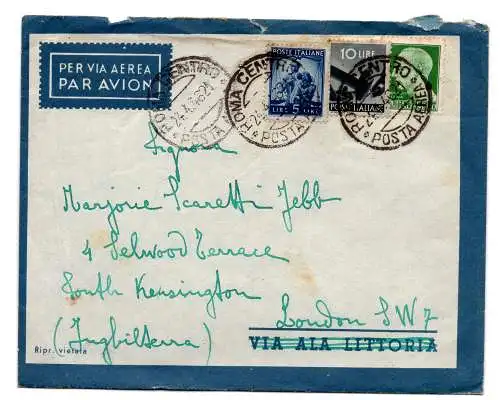 PER VIA AEREA
PAR AVION
ROMA CENTRO
* POSTA
ROMA CENTRO
* POSTA
ROMA CENTRO
* POSTA AEREA
POSTE ITALIANE
LIRE 5 LIRE
10 LIRE
POSTE ITALIANE
Signora
Marjorie Scaretti Jebb
4 Selwood Terrace
South Kensington
London SW7
(Inghilterra)
VIA ALA LITTORIA
Ripr. vietata